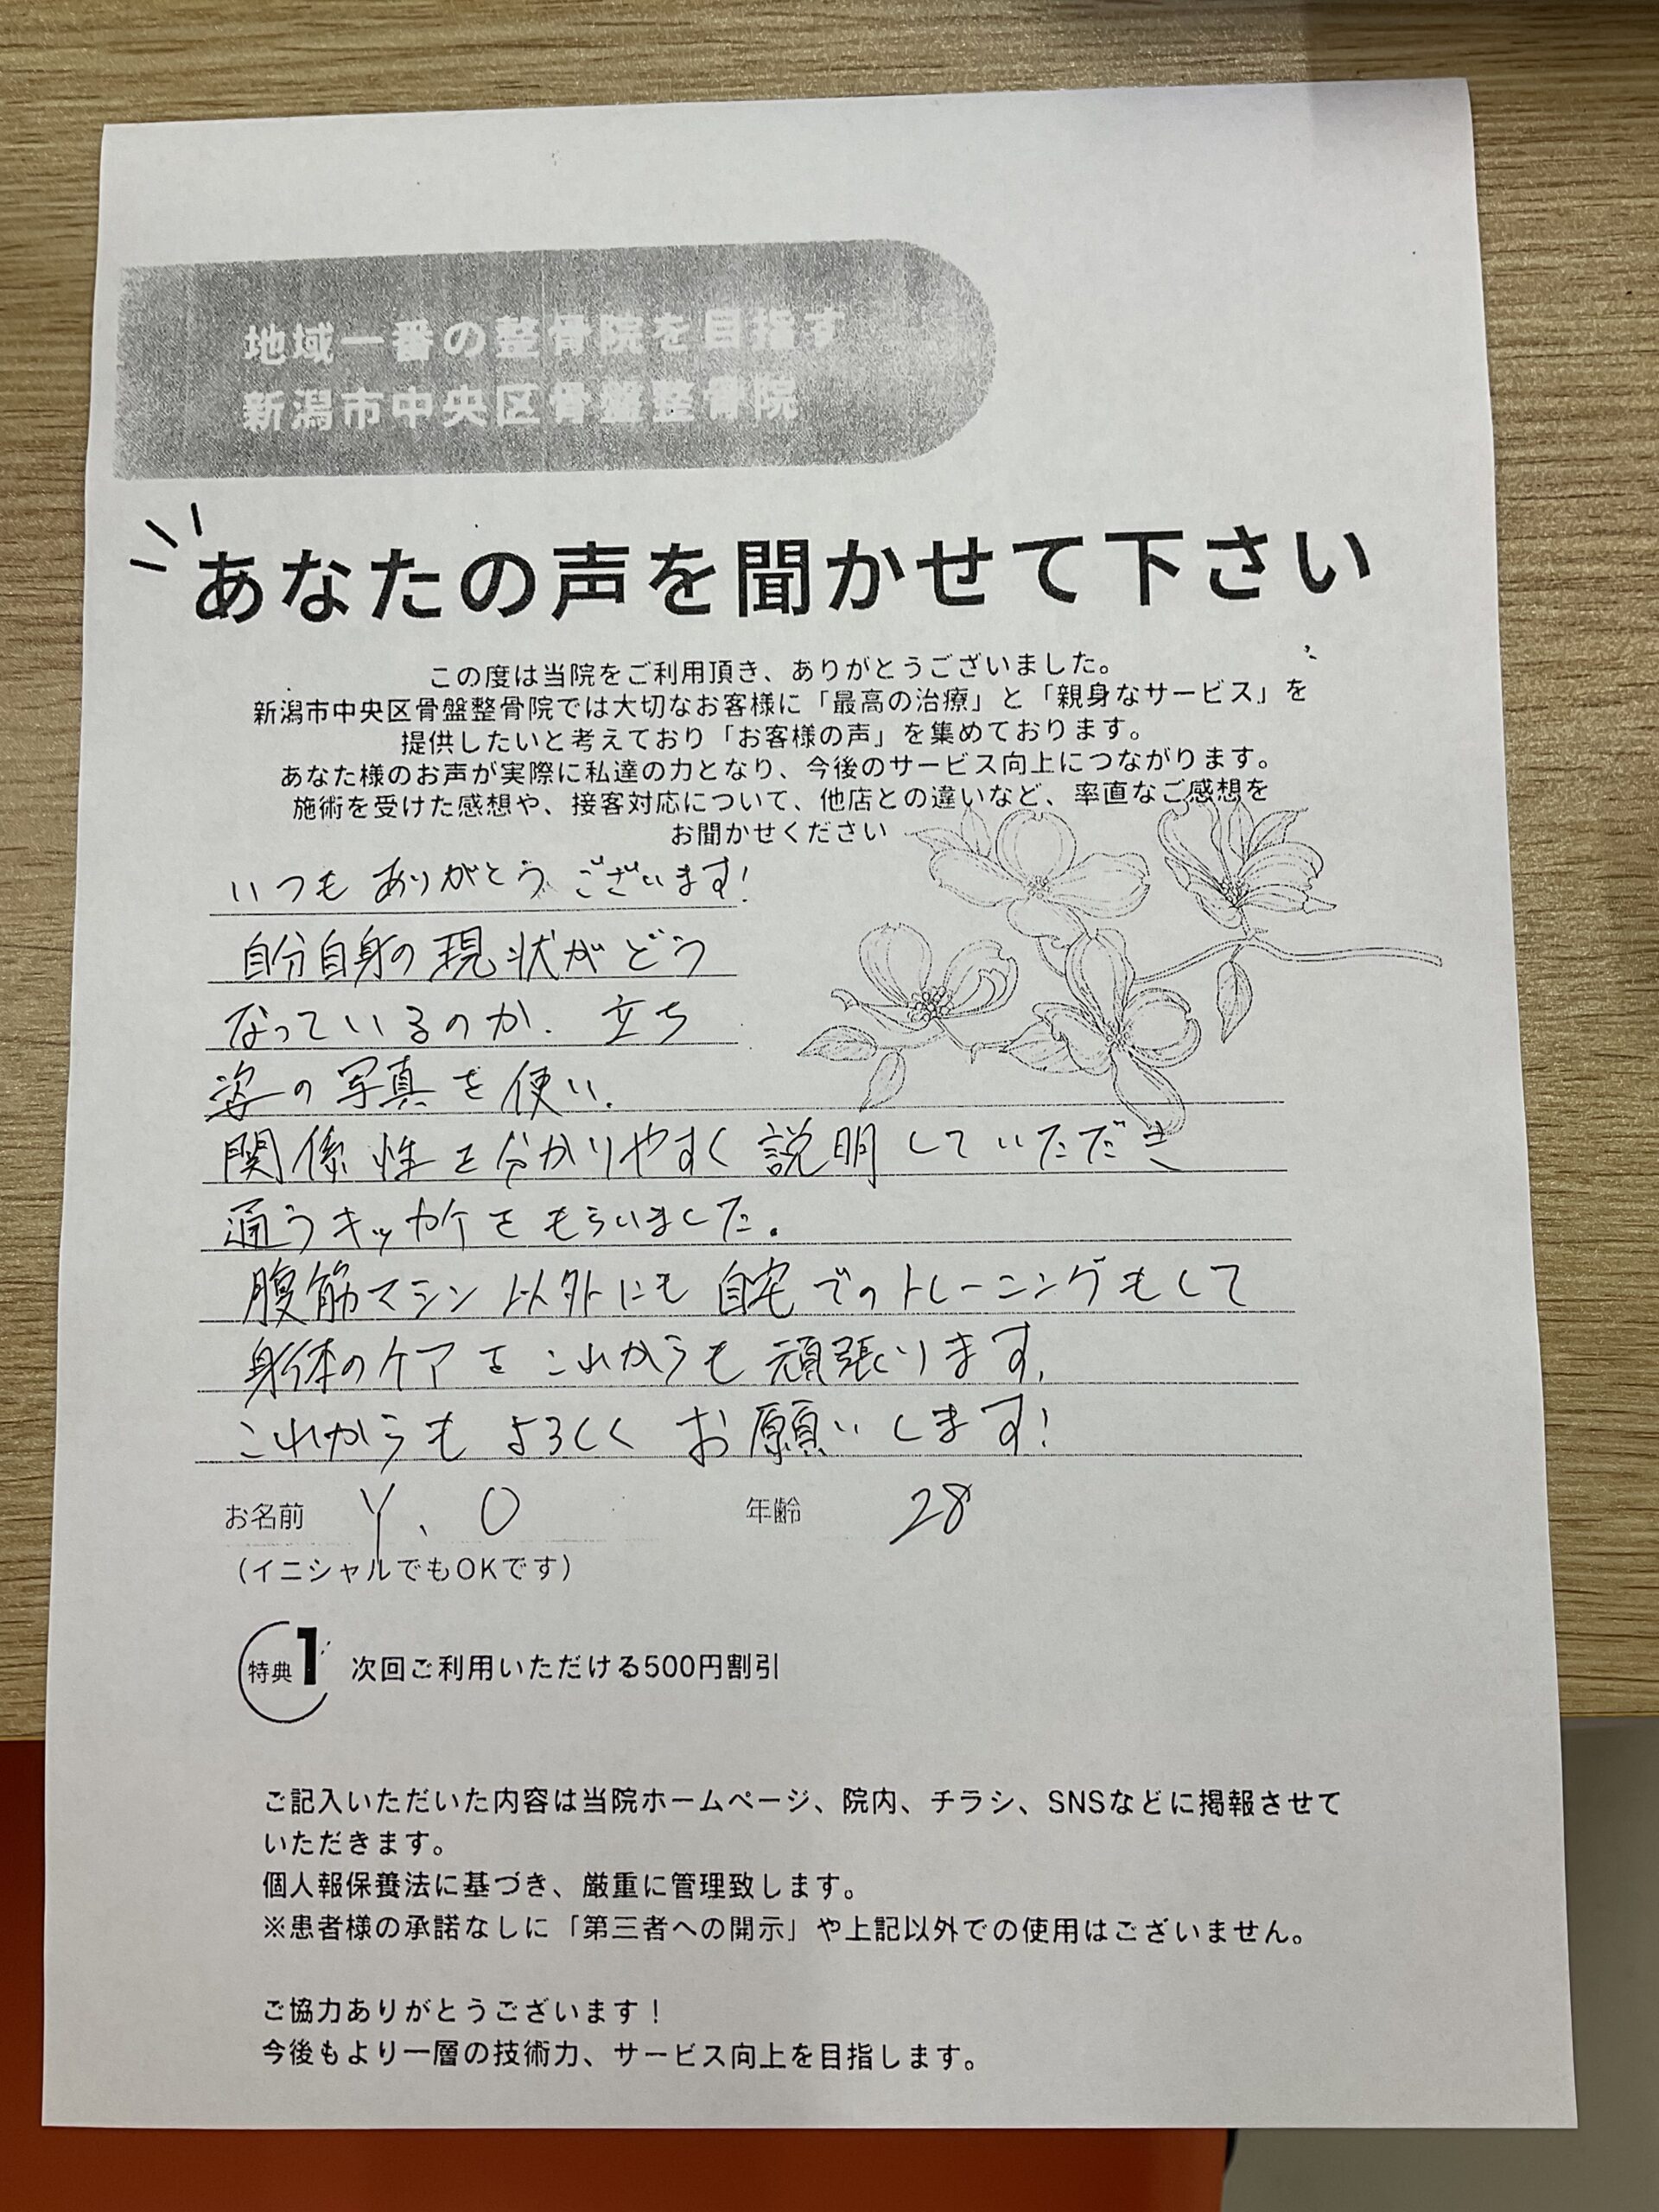 地域一番の整骨院を目指す
新潟市中央区骨盤整骨院
あなたの声を聞かせて下さい
この度は当院をご利用頂き、ありがとうございました。
新潟市中央区骨盤整骨院では大切なお客様に「最高の治療」と「親身なサービス」を
提供したいと考えており「お客様の声」を集めております。
あなた様のお声が実際に私達の力となり、今後のサービス向上につながります。
施術を受けた感想や、接客対応について、他店との違いなど、率直なご感想を
お聞かせください
いつもありがとうございます!
自分自身の現状がどう
なっているのか、立ち
姿の写真を使い、
関係性を分かりやすく説明していただき
通うキッカケをもらいました。
腹筋マシン以外にも自宅でのトレーニングもして
身体のケアをこれからも頑張ります。
これからもよろしくお願いします!
お名前 Y、O 年齢 28
（イニシャルでもOKです）
特典1 次回ご利用いただける500円割引
ご記入いただいた内容は当院ホームページ、院内、チラシ、SNSなどに掲報させて
いただきます。
個人報保養法に基づき、厳重に管理致します。
※患者様の承諾なしに「第三者への開示」や上記以外での使用はございません。
ご協力ありがとうございます！
今後もより一層の技術力、サービス向上を目指します。